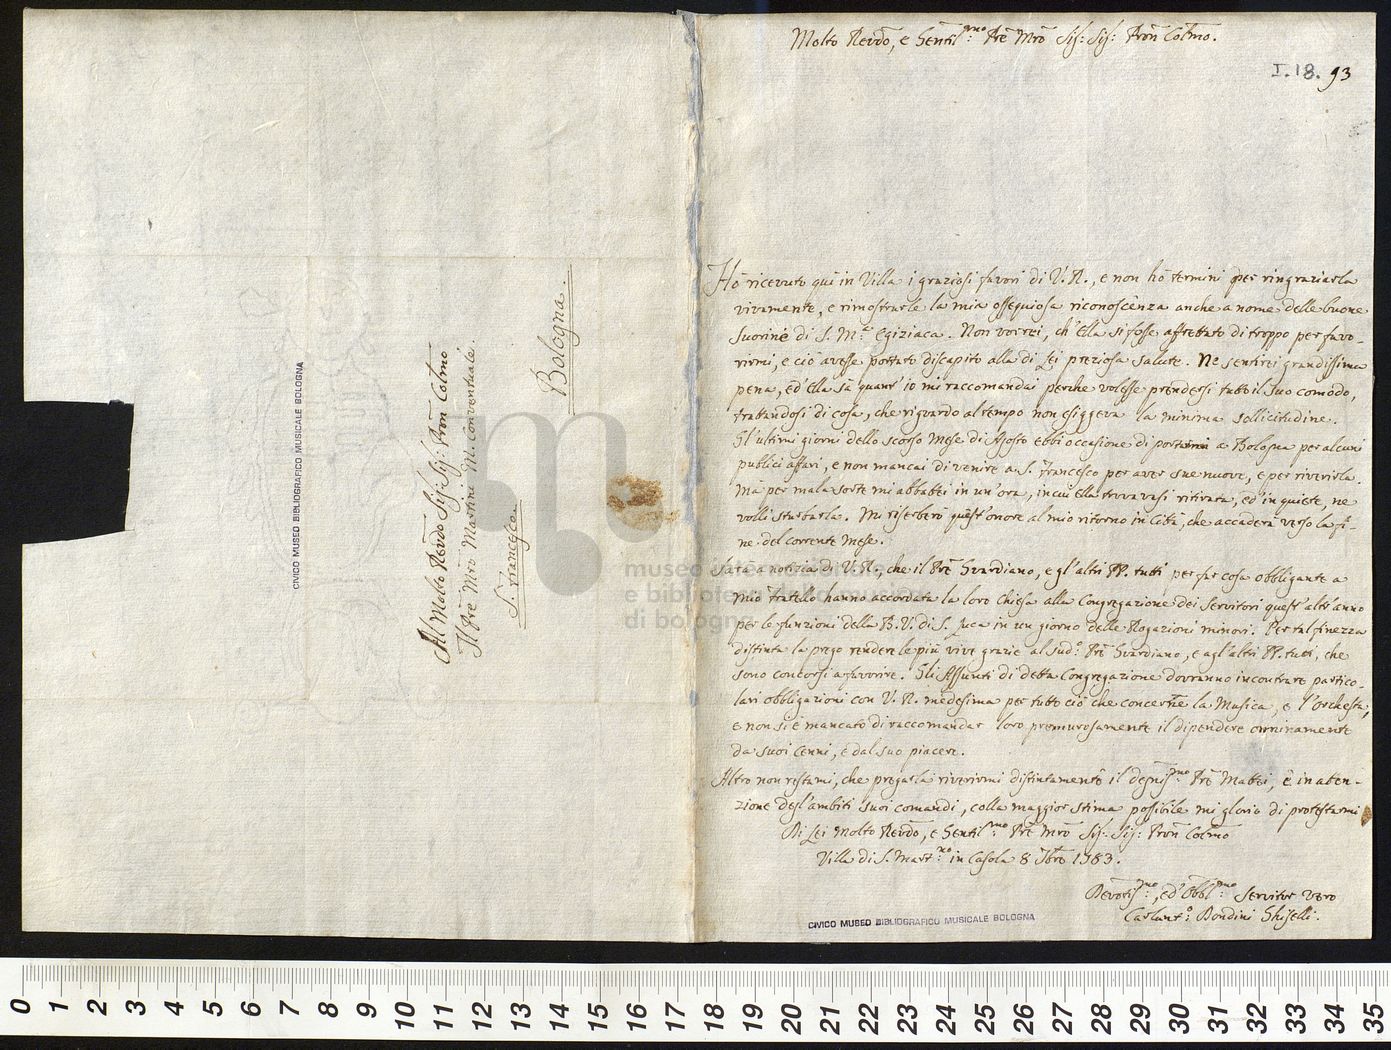 Molto Revdo, e Gentilmo Pre Mro Sig: Sig: Pron Colmo.
I.18. 93
Hò ricevuto qui in Villa i graziosi favori di V. R., e non hò termini per ringraziarla
vivamente, e rimostrarle la mia ossequiosa riconoscenza anche a nome delle buone
Suorine di S. Ma Egiziaca. Non vorrei, ch'Ella si fosse affrettato di troppo per favo-
rirmi, e ciò avesse portato discapito alla di Lei preziosa salute. Ne sentirei grandissima
pena, ed' Ella sà quant' io mi raccomandai perche volesse prendersi tutto il suo comodo,
trattandosi di cosa, che riguardo al tempo non esiggeva la minima sollicitudine.
Gl'ultimi giorni dello scorso Mese di Agosto ebbi occasione di portarmi a Bologna per alcuni
publici affari, e non mancai di venire a S. Francesco per aver sue nuove, e per riverirla.
Mà per mala sorte mi abbattei in un'ora, in cui ella trovavasi ritirata, ed' in quiete, ne
volli sturbarla. Mi riserberò quest'onore al mio ritorno in Città, che accaderà verso la fi-
ne del corrente Mese.
Sarà a notizia di V. R., che il Pre Guardiano, e gl'altri PP. tutti per far cosa obbligante a
mio fratello hanno accordata la loro Chiesa alla Congregazione dei Servitori quest'altr'anno
per le funzioni della B. V. di S. Luca in un giorno delle Rogazioni minori. Per tal finezza
distinta la prego rendere le più vive grazie al sudo Pre Guardiano, e agl'altri PP. tutti, che
sono concorsi a favorire. Gli Assunti di detta Congregazione dovranno incontrare partico-
lari obbligazioni con V. R. medesima per tutto ciò che concerne la Musica, e l'orchestra,
e non si è mancato di raccomandar loro premurosamente il dipendere onninamente
da suoi cenni, e dal suo piacere.
Altro non restami, che pregarla riverirmi distintamente il degnismo Pre Mattei, e in atten-
zione degl'ambiti suoi comandi, colla maggior stima possibile mi glorio di protestarmi
Di Lei Molto Revdo, e Gentilmo Pre Mro Sig: Sig: Pron Colmo
Villa di S. Martno in Casola 8 7bre 1783.
Devotismo, ed' Obblmo Servitor vero
Carlanto Bondini Ghiselli.
CIVICO MUSEO BIBLIOGRAFICO MUSICALE BOLOGNA
Al Molto Revdo Sig: Sig: Pron Colmo
Il Pre Mro Martini M. Conventuale.
S. Francesco.
Bologna.
CIVICO MUSEO BIBLIOGRAFICO MUSICALE BOLOGNA
museo internazionale
e biblioteca della musica
di bologna
0 1 2 3 4 5 6 7 8 9 10 11 12 13 14 15 16 17 18 19 20 21 22 23 24 25 26 27 28 29 30 31 32 33 34 35